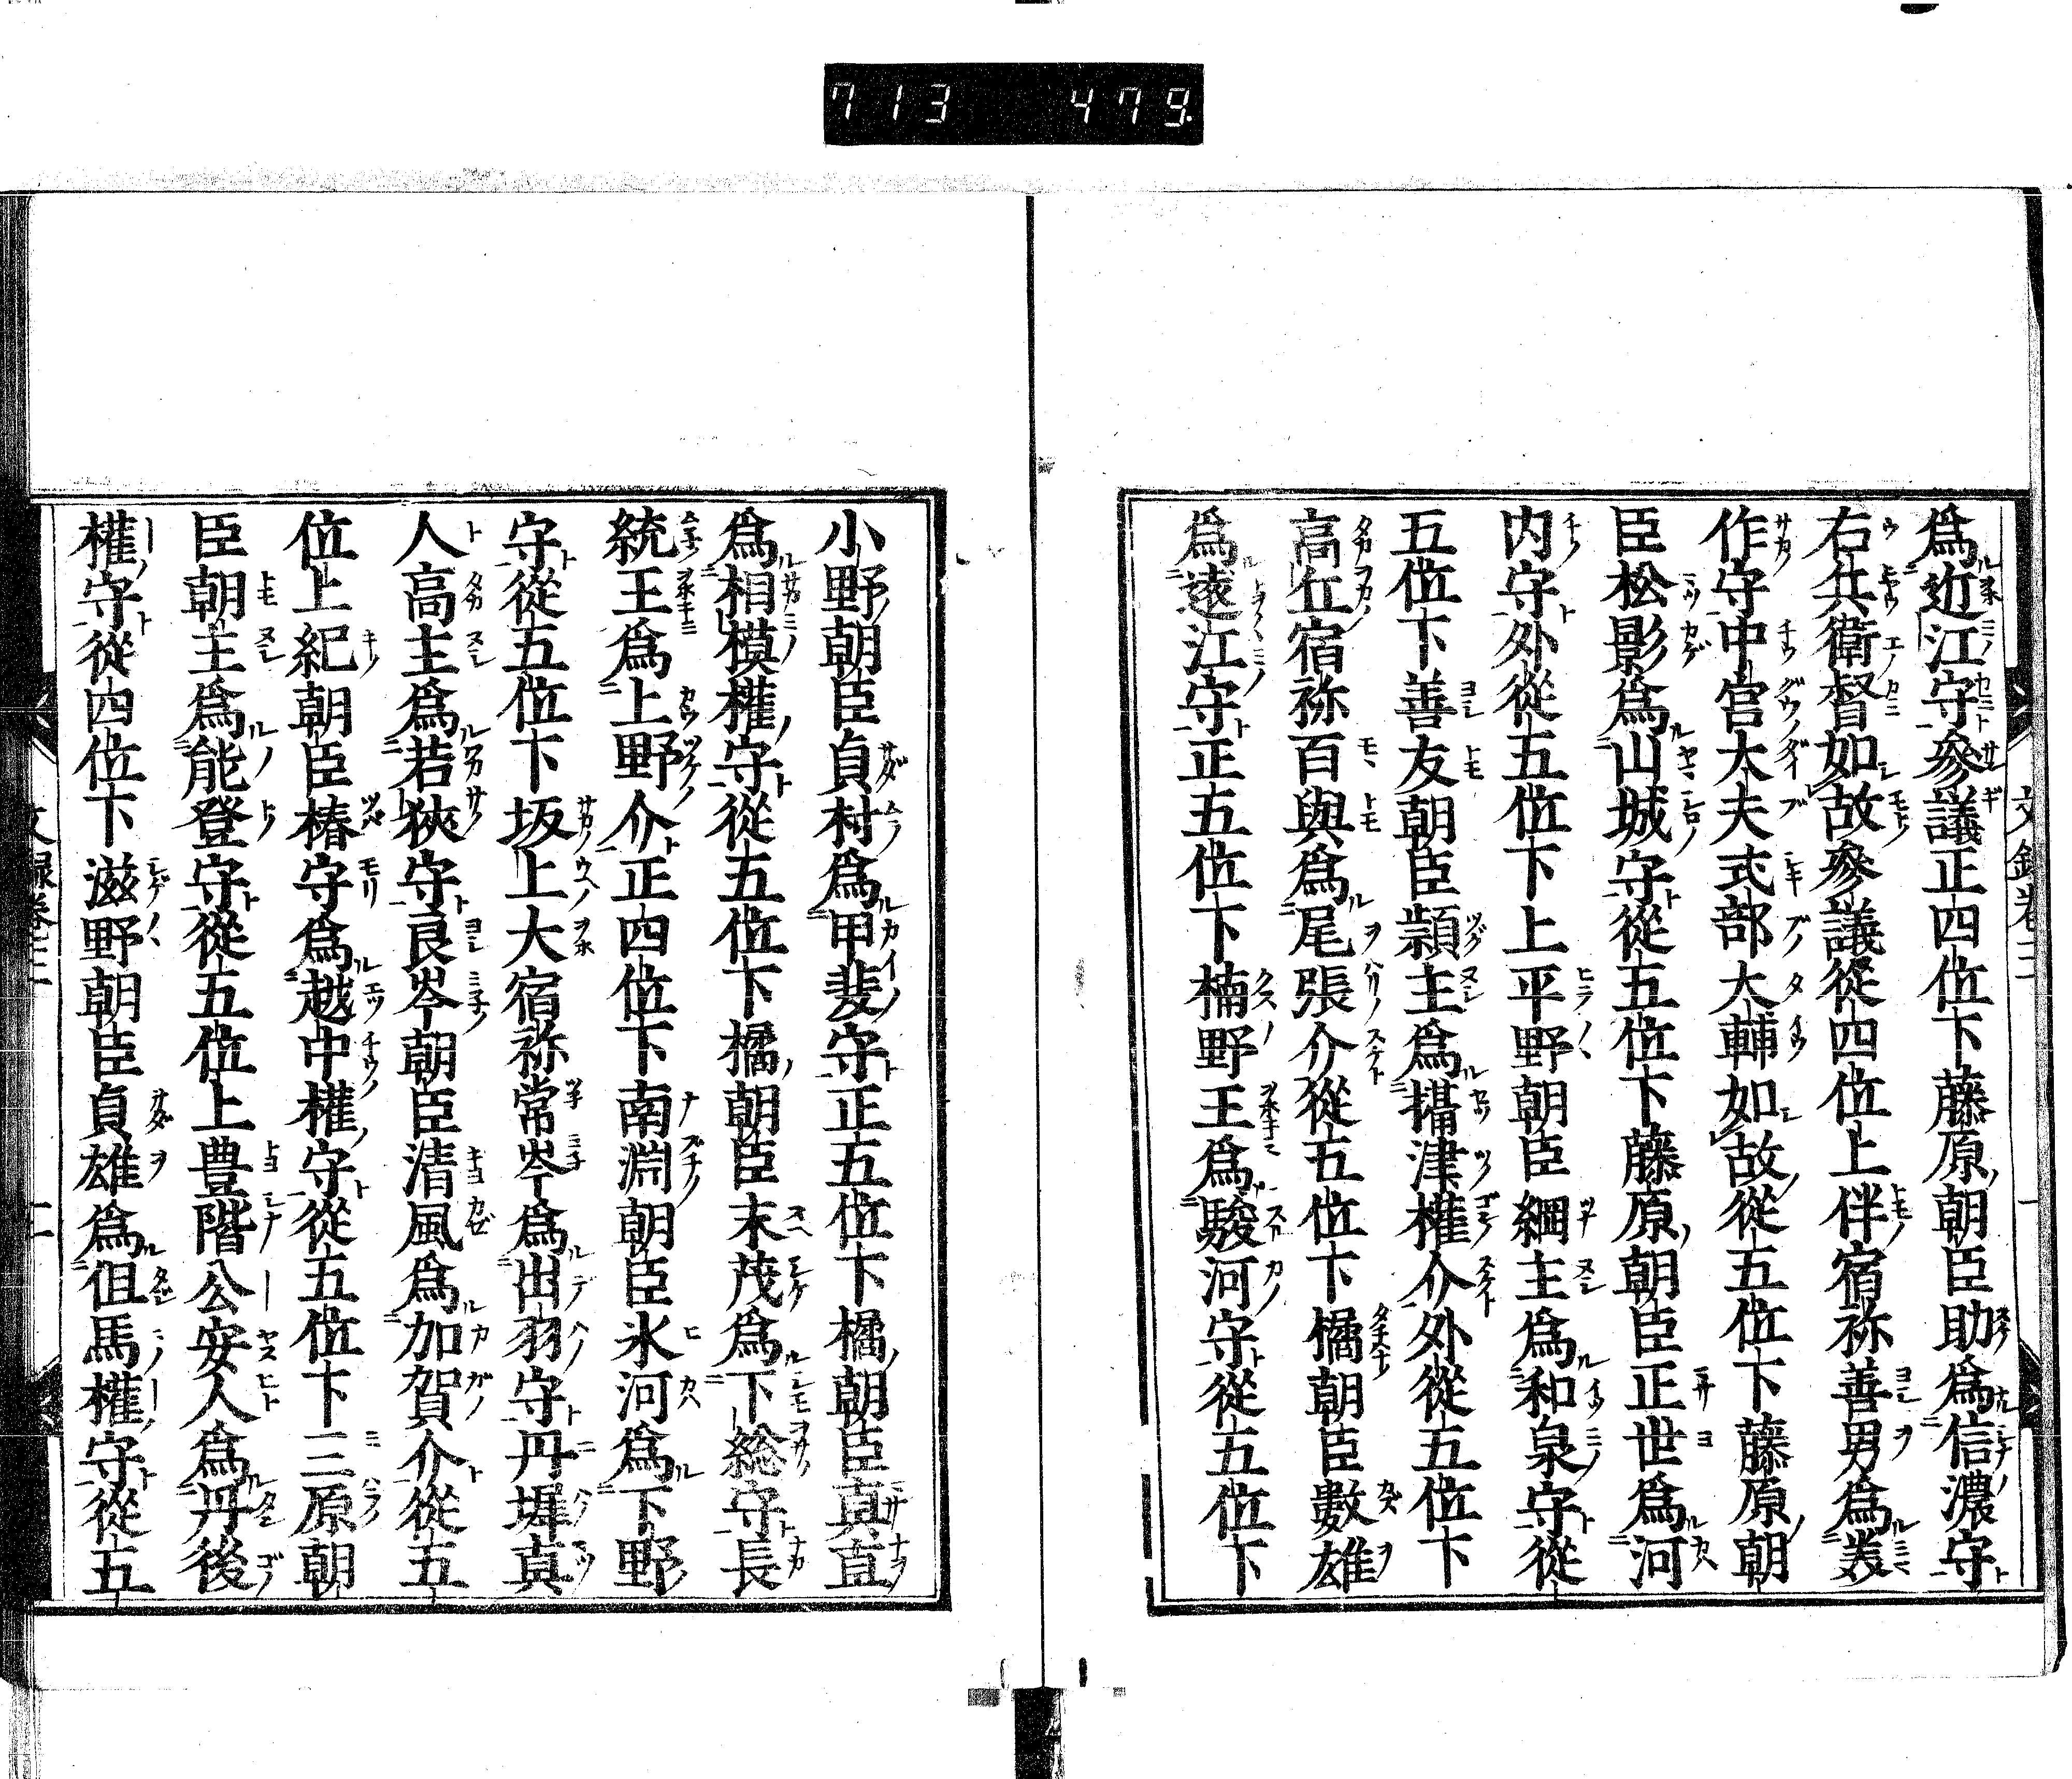 713 479
爲近江守參議正四位下藤原朝臣助爲信濃守
右兵衛督如故參議從四位上伴宿祢善男爲美
作守中宮大夫式部大輔如故從五位下藤原朝
臣松影爲山城守從五位下藤原朝臣正世爲河
内守外從五位下上平野朝臣綱主爲和泉守從
五位下善友朝臣頴主爲攝津權介外從五位下
高丘宿祢百與爲尾張介從五位下橘朝臣數雄
爲遠江守正五位下楠野王爲駿河守從五位下
小野朝臣貞村爲甲斐守正五位下橘朝臣真直
爲相模權守從五位下橘朝臣末茂爲下総守長
統王爲上野介正四位下南淵朝臣氷河爲下野
守從五位下坂上大宿祢常岑爲出羽守丹墀真
人高主爲若狹守良岑朝臣清風爲加賀介從五
位上紀朝臣椿守爲越中權守從五位下三原朝
臣朝主爲能登守從五位上豊階公安人爲丹後
權守從四位下滋野朝臣貞雄爲但馬權守從五